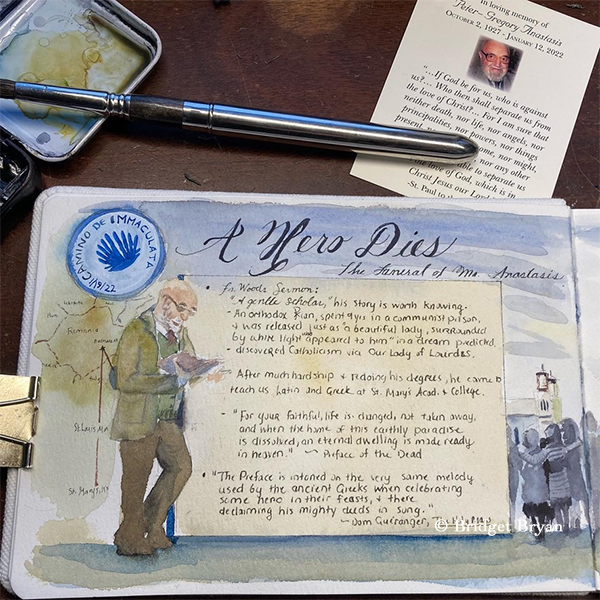 In loving memory of
Peter-Gregory Anastasis
October 2, 1927 - January 12, 2022
"...If God be for us, who is against
us?... Who then shall separate us from
the love of Christ?... For I am sure that
neither death, nor life, nor angels, nor
principalities, nor powers, nor things
present, come, nor might,
nor any other
able to separate us
love of God, which is in
Christ Jesus our Lord
-St. Paul to the
CAMINO DE IMMACULATA
A Hero Dies
The Funeral of Mr. Anastasis
• Fr. Wood's Sermon:
"A gentle scholar," his story is worth knowing.
- An orthodox Rom, spent 9 yrs in a communist prison,
& was released just as "a beautiful lady, surrounded
by white light" appeared to him in a dream predicted.
- discovered Catholicism via Our Lady of Lourdes.
- After much hardship & redoing his degrees, he came to
teach us Latin and Greek at St. Mary's Acad. & College.
- "For your faithful, life is changed, not taken away,
and when the home of this earthly paradise
is dissolved, an eternal dwelling is made ready
in heaven." ~ Preface of the Dead
• "The Preface is intoned on the very same melody
used by the ancient Greeks when celebrating
some hero in their feasts, & there
declaiming his mighty deeds in song."
~ Dom Gueranger,
Romania
St Louis
St. Mary's
© Bridget Bryan